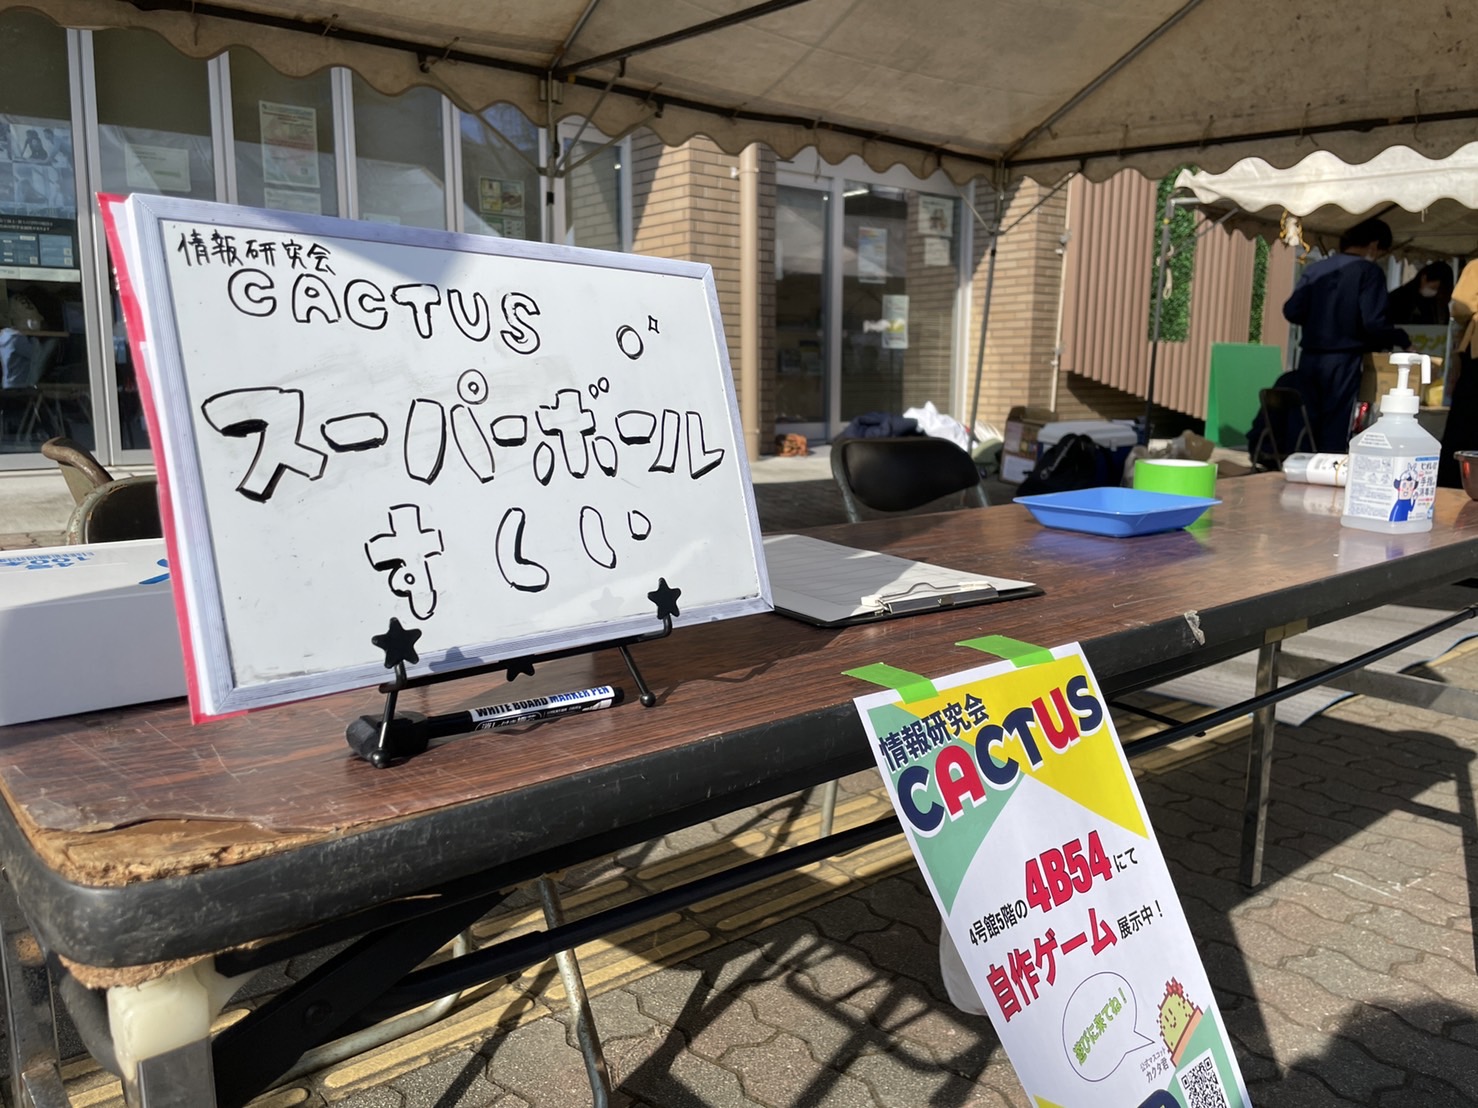 情報研究会
CACTUS
スーパーボール
すくい
WHITE BOARD MARKER PEN
情報研究会
CACTUS
4号館5階の4B54にて
自作ゲーム展示中！
遊びに来てね！
公式マスコット
カクタ君